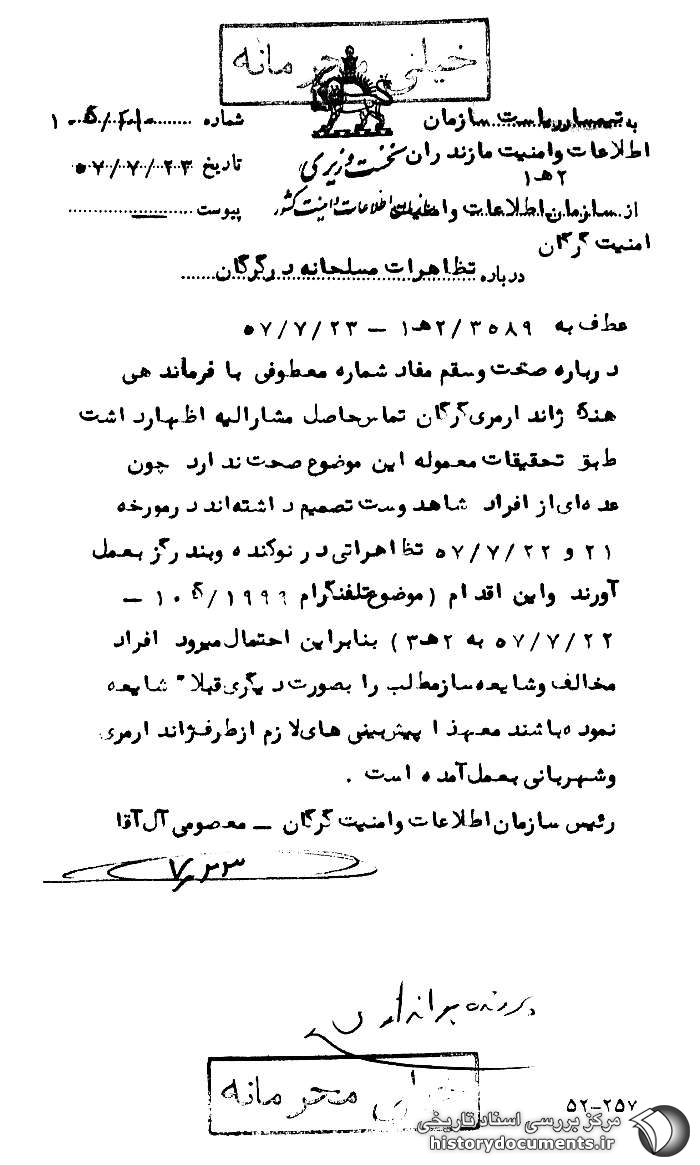 خیلی محرمانه
به تیمسار ریاست سازمان
اطلاعات و امنیت مازندران
۲هـ۱
نخست وزیری
سازمان اطلاعات و امنیت کشور
شماره
تاریخ ۵۷/۷/۲۳
پیوست
از سازمان اطلاعات و
امنیت گرگان
درباره تظاهرات مسلحانه در گرگان
عطف به ۲/۳۵۸۹هـ۱ – ۵۷/۷/۲۳
درباره صحت و سقم مفاد شماره معطوفی با فرماندهی
هنگ ژاندارمری گرگان تماس حاصل مشارالیه اظهار داشت
طبق تحقیقات معموله این موضوع صحت ندارد چون
عده‌ای از افراد شاهدوست تصمیم داشته‌اند در مورخه
۲۱ و ۵۷/۷/۲۲ تظاهراتی در نوکنده و بندرگز بعمل
آورند و این اقدام (موضوع تلفنگرام ۱۹۹۹/گ ۱۰ –
۵۷/۷/۲۲ به ۲هـ۳) بنابراین احتمال میرود افراد
مخالف و شایعه ساز مطلب را بصورت دیگری قبلا" شایعه
نموده باشند معهذا پیش بینی های لازم از طرف ژاندارمری
و شهربانی بعمل آمده است .
رئیس سازمان اطلاعات و امنیت گرگان – معصومی آل آقا
۷/۲۳
پرونده
خیلی محرمانه
۵۲-۲۵۷
مرکز بررسی اسناد تاریخی
historydocuments.ir